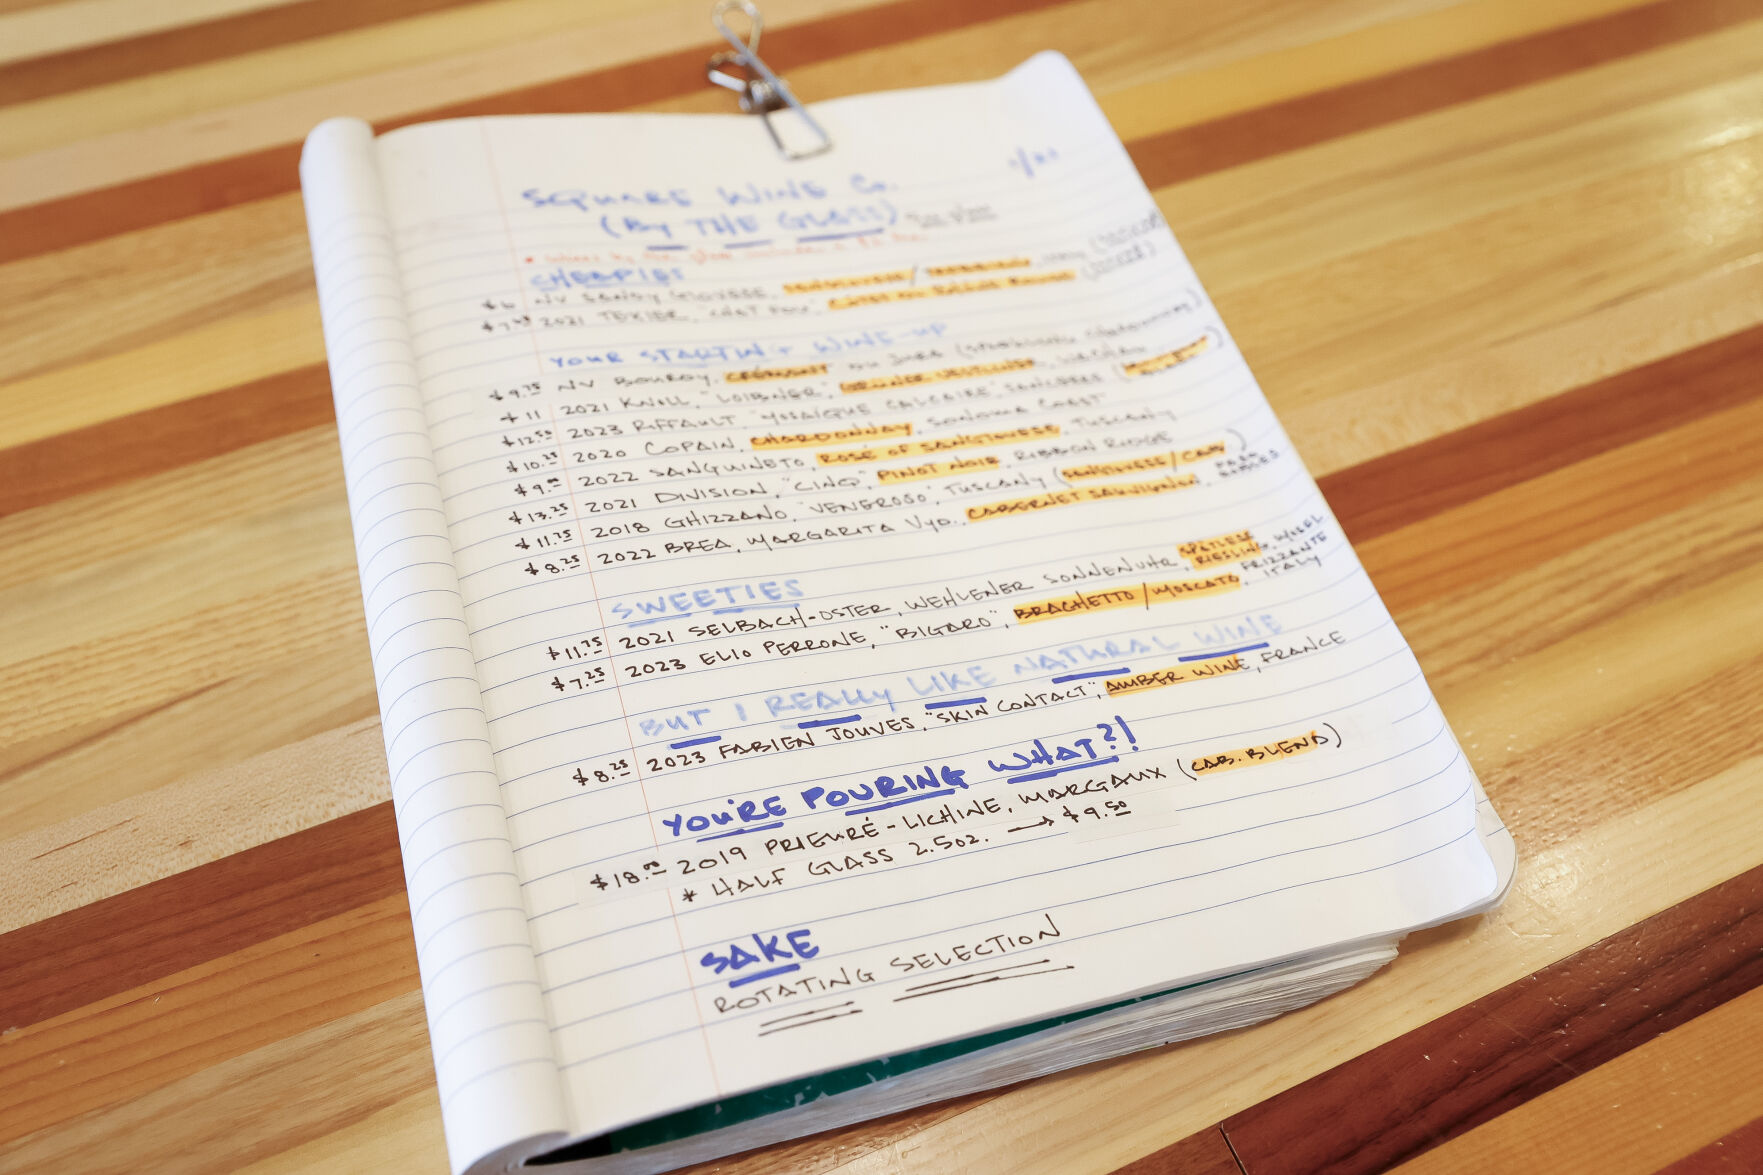 SQUARE WINE Co.
(BY THE GLASS)
CHEAPIES
$6 NV SANDY GIOVESE,
2021 TEXIER, "CHAT FOU",
YOUR STARTING WINE-UP
$9.75 NV BOURDY, CRÉMANT DU JURA (SPARKLING CHARDONNAY)
$11 2021 KNOLL, "LOIBNER," GRÜNER VELTLINER, WACHAU
$12.50 2023 RIFFAULT "MOSAÏQUE CALCAIRE", SANCERRE
$10.25 2020 COPAIN, CHARDONNAY, SONOMA COAST
$9.00 2022 SANGUINETO, ROSÉ OF SANGIOVESE, TUSCANY
$13.25 2021 DIVISION, "CINQ", PINOT NOIR, RIBBON RIDGE
$11.75 2018 GHIZZANO, "VENEROSO", TUSCANY (SANGIOVESE/CAB)
$8.25 2022 BREA, MARGARITA VYD., CABERNET SAUVIGNON, PASO ROBLES
SWEETIES
$11.75 2021 SELBACH-OSTER, WEHLENER SONNENUHR, SPÄTLESE RIESLING, MOSEL
$7.25 2023 ELIO PERRONE, "BIGARO", BRACHETTO/MOSCATO, FRIZZANTE ITALY
BUT I REALLY LIKE NATURAL WINE
$8.25 2023 FABIEN JOUVES, "SKIN CONTACT", AMBER WINE, FRANCE
YOU'RE POURING WHAT?!
$18.00 2019 PRIEURÉ-LICHINE, MARGAUX (CAB. BLEND)
* HALF GLASS 2.5oz. → $9.50
SAKE
ROTATING SELECTION